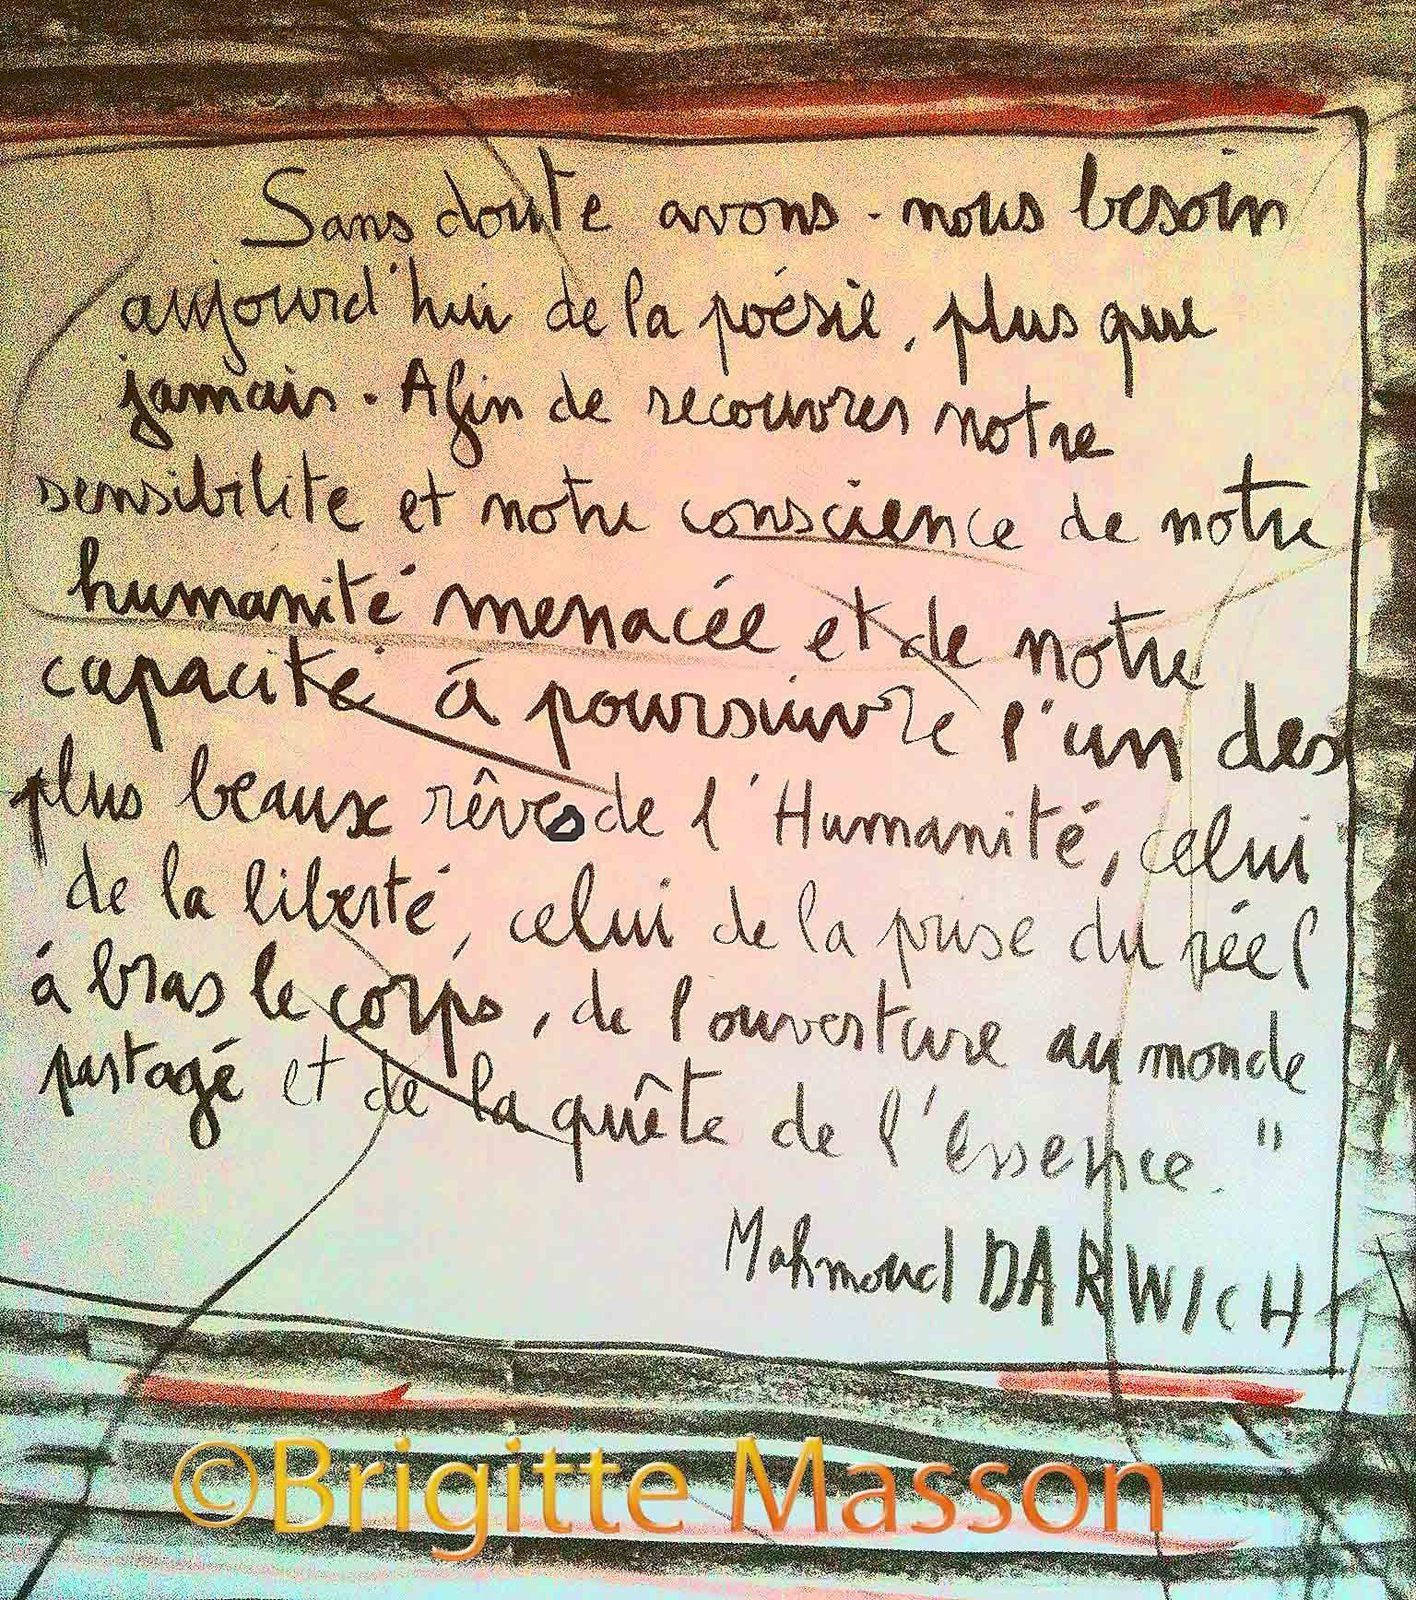 Sans doute avons-nous besoin
aujourd'hui de la poésie, plus que
jamais. Afin de recouvrer notre
sensibilité et notre conscience de notre
humanité menacée et de notre
capacité à poursuivre l'un des
plus beaux rêves de l'Humanité, celui
de la liberté, celui de la prise du réel
à bras le corps, de l'ouverture au monde
partagé et de la quête de l'essence."
Mahmoud DARWICH
©Brigitte Masson